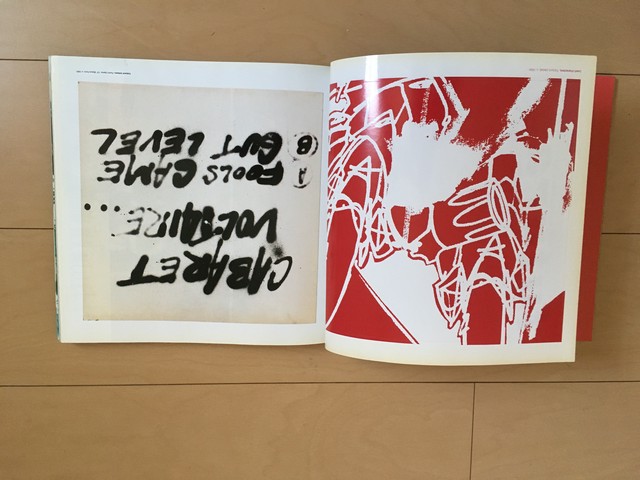 CABARET
VOLTAIRE...
A FOOLS GAME
B GUT LEVEL